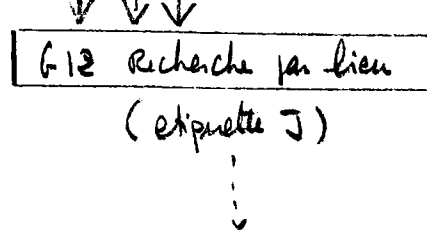 G12 Recherche par lieu
(etiquette J)